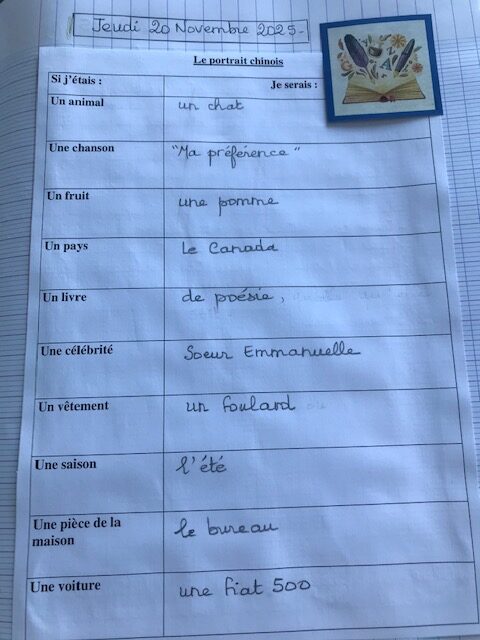 Jeudi 20 Novembre 2025.
Le portrait chinois
Si j'étais : Je serais :
Un animal un chat
Une chanson "Ma préférence"
Un fruit une pomme
Un pays Le Canada
Un livre de poésie,
Une célébrité Soeur Emmanuelle
Un vêtement un foulard
Une saison l'été
Une pièce de la maison le bureau
Une voiture une fiat 500